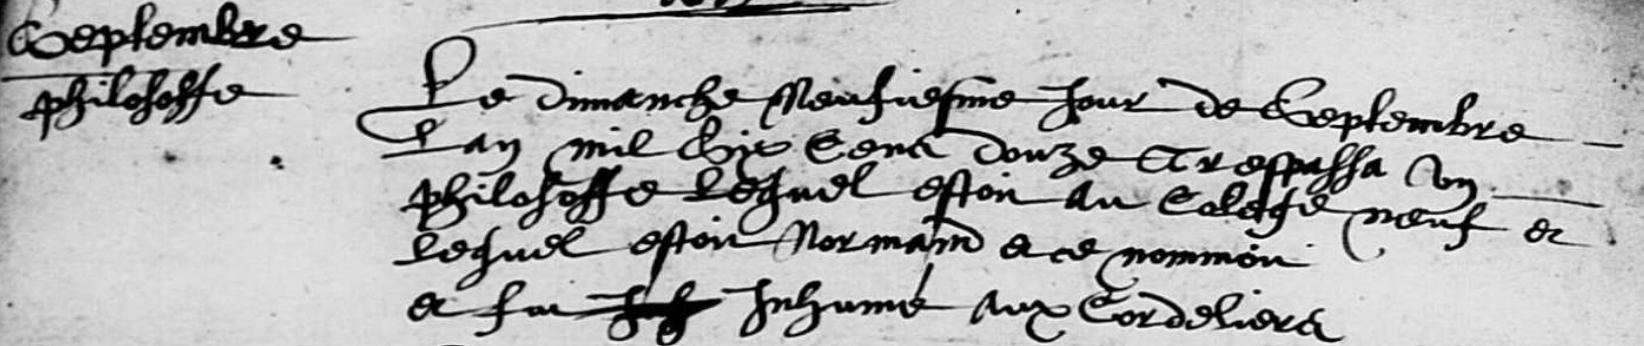 Septembre
philosoffe
Le dimanche Neufiesme Jour de Septembre
Lan mil Six Cens douze Trespassa Un
philosoffe Lequel estoit Au Colege neuf et
Lequel estoit Normand et ce nommoit
et fut Inhumé Aux Cordeliers